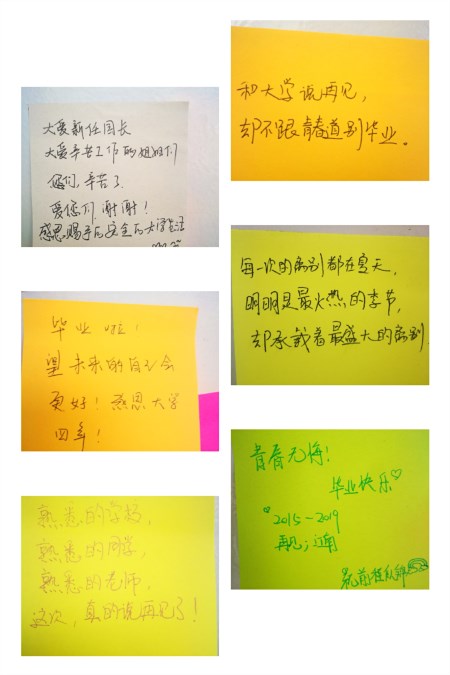 大爱新任园长
大爱辛苦工作的姐姐们
您们,辛苦了
爱您们,谢谢!
感恩赐予的安全的大学生活
毕业啦!
望未来的自己会
更好!感恩大学
四年!
熟悉的学校,
熟悉的同学,
熟悉的老师,
这次,真的说再见了!
和大学说再见,
却不跟青春道别毕业。
每一次的离别都在夏天,
明明是最火热的季节,
却承载着最盛大的离别.
青春无悔!
毕业快乐♡
2015-2019
再见;